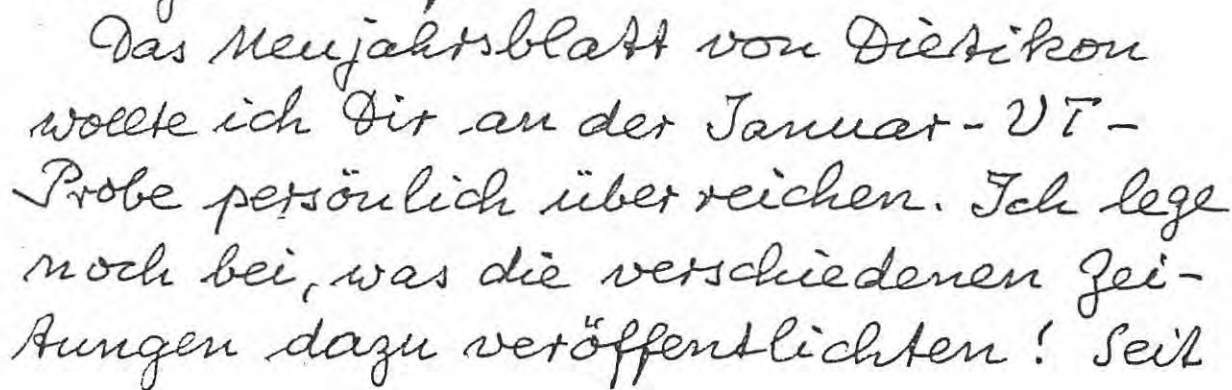 Das Neujahrsblatt von Dietikon
wollte ich Dir an der Januar-VT-
Probe persönlich überreichen. Ich lege
noch bei, was die verschiedenen Zei-
tungen dazu veröffentlichten! Seit